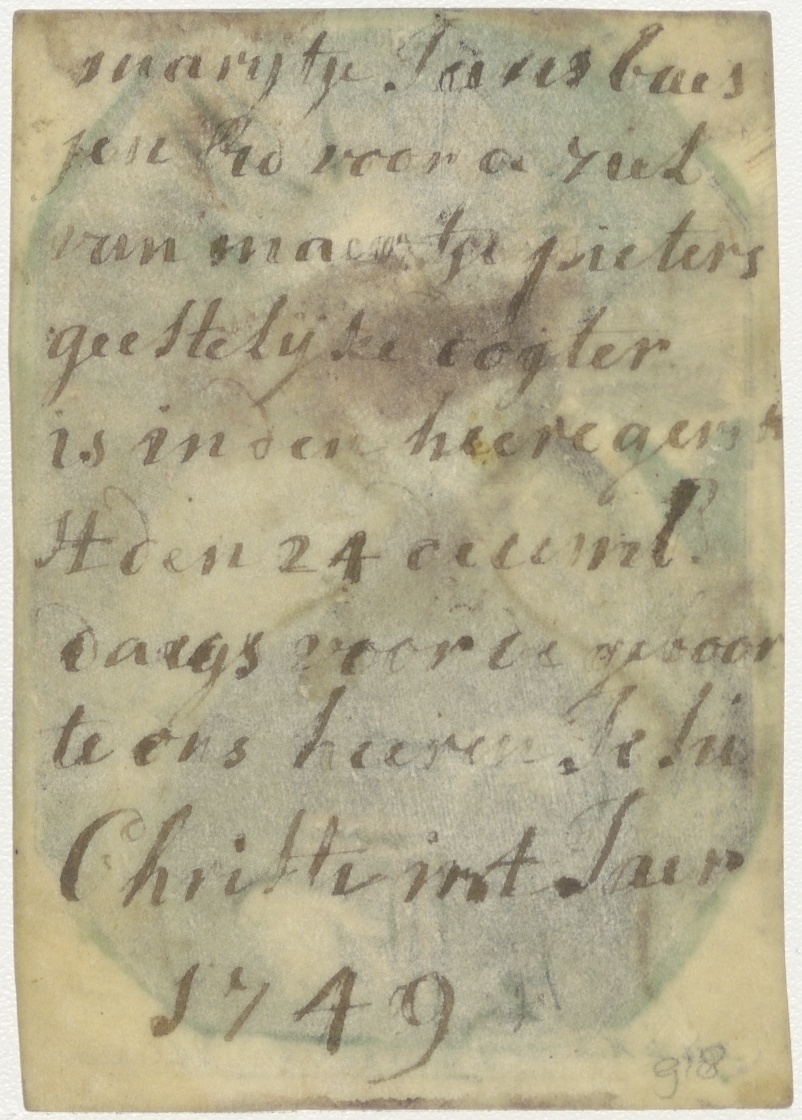 marijtje Jans baes
jen Bid voor de ziel
van maertje pieters
geestelijke dogter
is in den heere gerus
st den 24 decemb.
daegs voor de geboor
te ons heeren Jesu
Christi int Jaer
1749
918